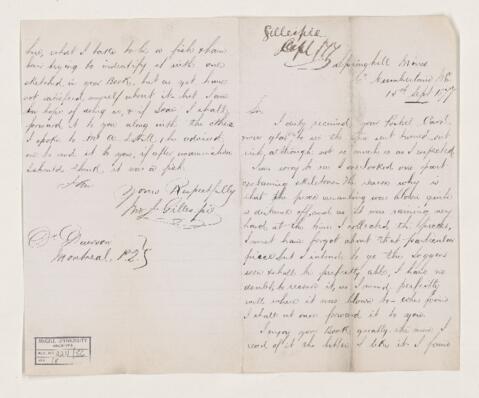 Gillespie
Sept 1877
Springhill Mines
Co Cumberland N.S.
15th Sept 1877
Sir
I duly received your Postal Card,
very glad to see the box sent turned out
rich, although not so much as I expected.
I am sorry to see I overlooked one part
containing skeleton. The reason why is
that the piece remaining was blown quite
a distance off, and as it was raining very
hard at the time I collected the Species,
I must have forgot about that particular
piece but I intend to go the Joggins
soon & shall be perfectly able, I have no
doubt, to receive it, as I mind perfectly
well where it was blown to - when found
I shall at once forward it to you.
I enjoy your Book greatly the more I
read of it the better I like it. I found
here, what I take to be a fish & have
been trying to indentify it with one
sketched in your Book, but as yet have
not satisfied myself about it, but I am
in hopes of doing so, & if soon I shall
forward it to you along with the other
I spoke to Mr A. Hill, he advised
me to send it to you, if after examination
I should think it was a fish.
I Am
Yours Respectfully
Gillespie
Dr Dawson
Montreal, P.Q.
McGILL UNIVERSITY
ARCHIVES
ACC. NO.
REF.